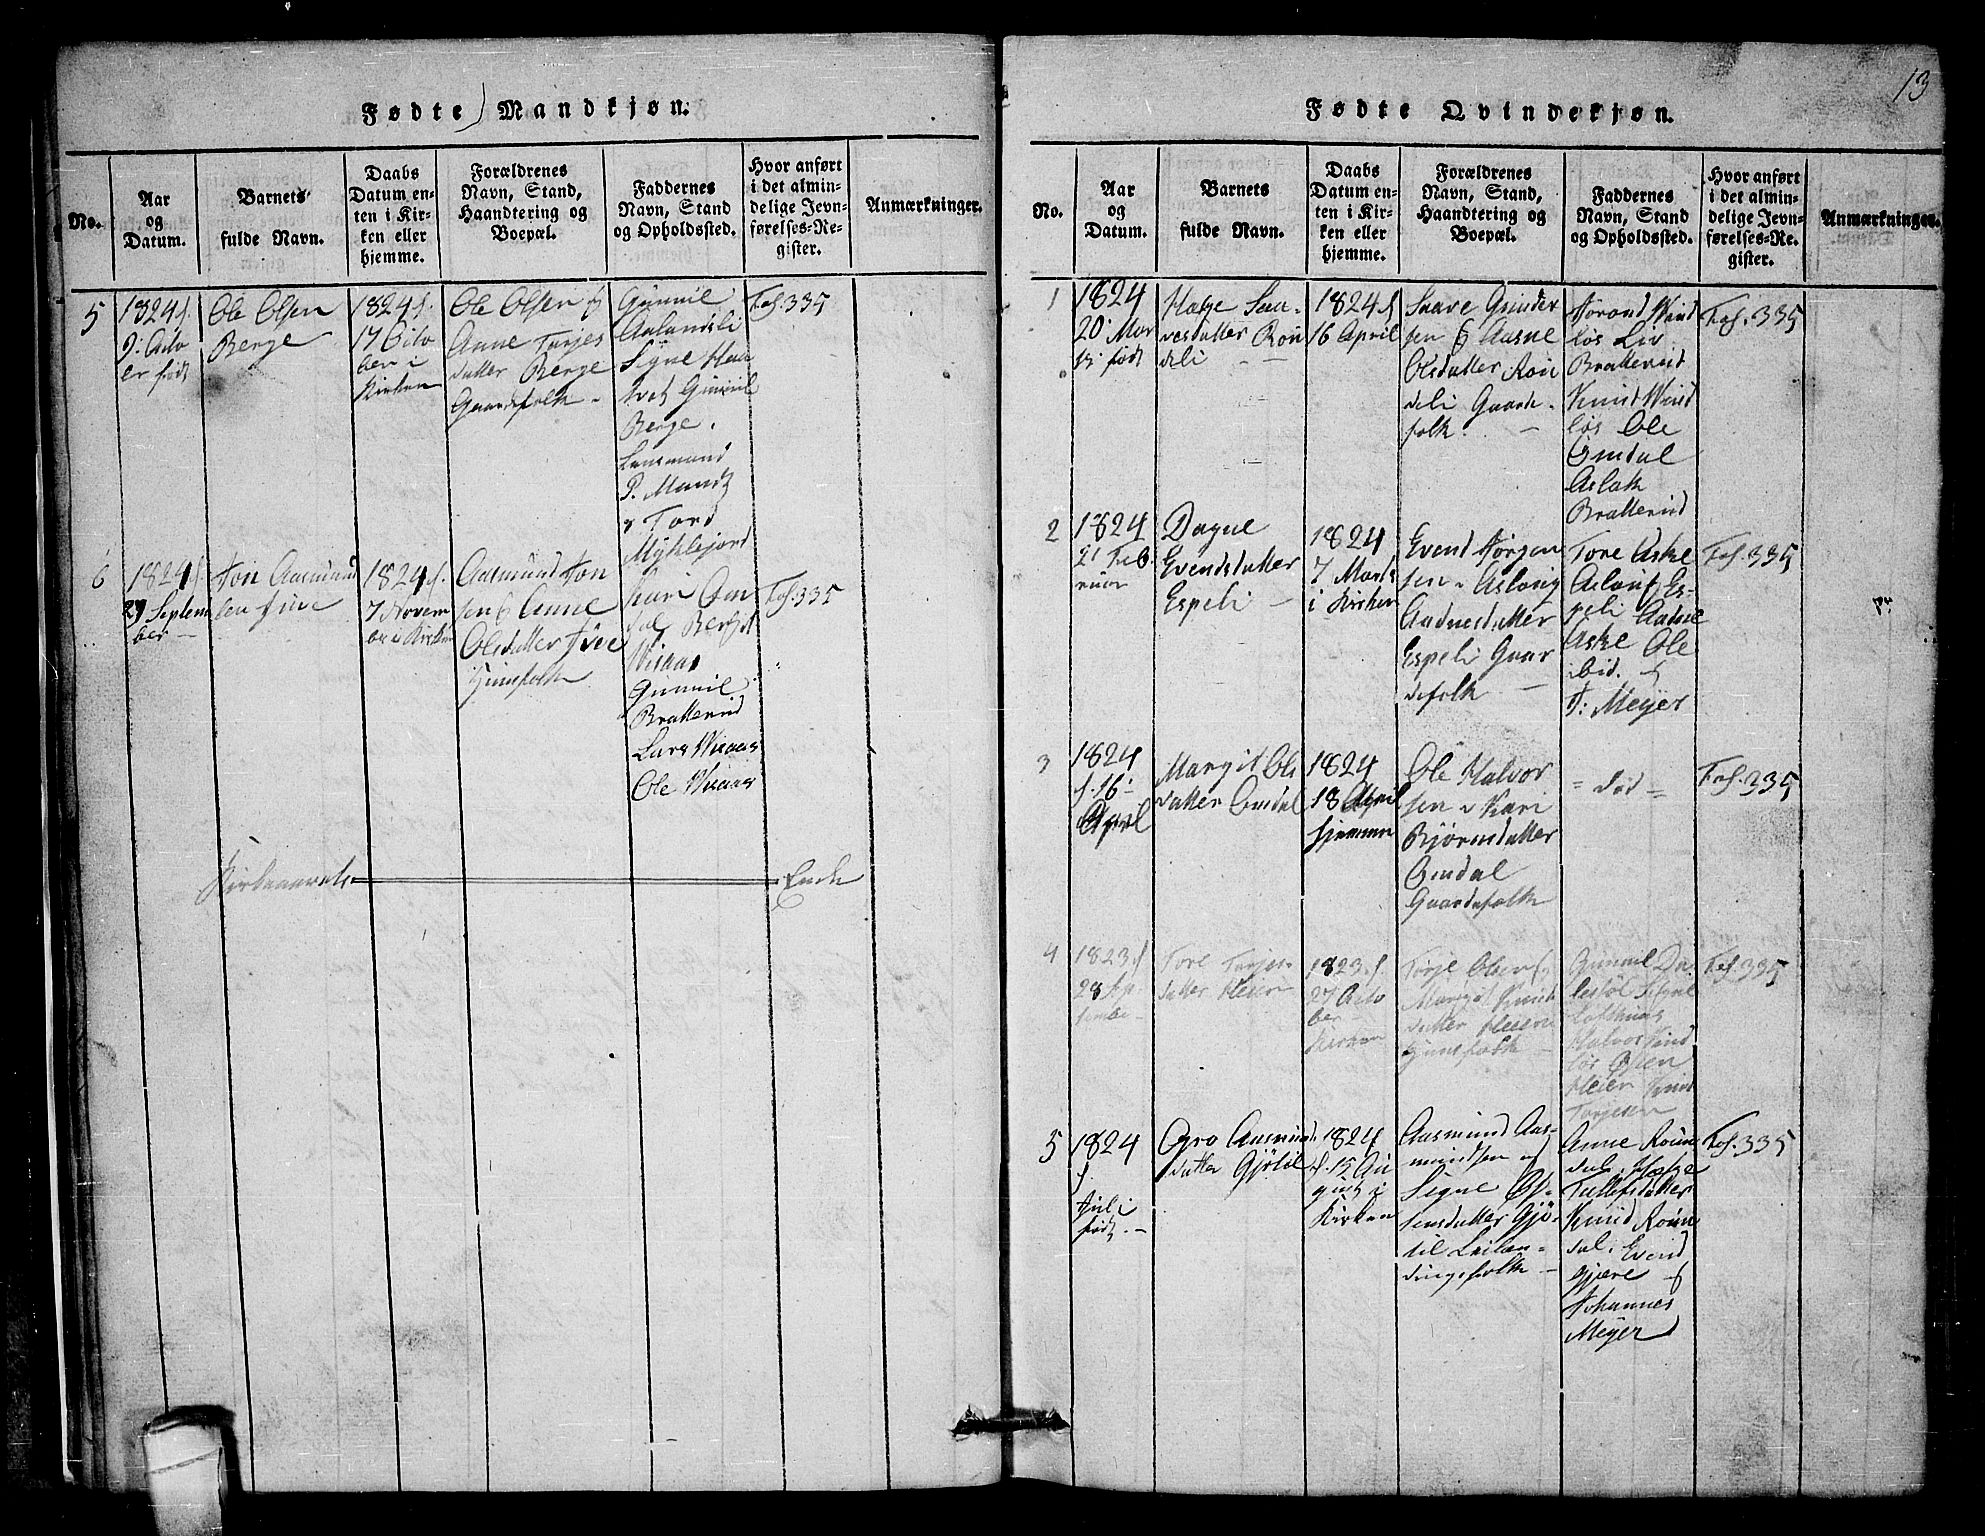 13
Fødte Mandkjøn.
No.
Aar
og
Datum.
Barnets
fulde Navn.
Daabs
Datum en-
ten i Kir-
ken eller
hjemme.
Forældrenes
Navn, Stand,
Haandtering og
Boepæl.
Faddernes
Navn, Stand
og Opholdssted.
Hvor anført
i det almin-
delige Jevn-
førelses-Re-
gister.
Anmærkninger.
5
1824 f.
9: Octo
er født
Ole Olsen
Berge
1824 f.
17 Octo
ber i
Kirken
Ole Olsen &
Anne Torjes
datter Berge
Gaardefolk -
Gunnil
Aalandsli
Signe
Gunnil
Berge.
Lensmand
P. Mandt
& Tord
Myklejord
Fol. 335
6
1824 f.
29 Septem
ber -
Jon Aasmund
sen
1824 f.
7 Novem
ber i Kirken
Aasmund Jon
sen & Anne
Olsdatter
Huusfolk
Kari Om
dal Bergit
Wisaas
Gunnil
Bratterud
Lars Wisaas
Ole Wisaas
Fol. 335
Kirkeaarets
Ende
Fødte Qvindekjøn.
No.
Aar
og
Datum.
Barnets
fulde Navn.
Daabs
Datum en-
ten i Kir-
ken eller
hjemme.
Forældrenes
Navn, Stand,
Haandtering og
Boepæl.
Faddernes
Navn, Stand
og Opholdssted.
Hvor anført
i det almin-
delige Jevn-
førelses-Re-
gister.
Anmærkninger.
1
1824
20: Mar
ts: født
Hæge Saa-
vesdatter Roun
deli -
1824 f
16 April
Saave Gunder
sen & Aasne
Olsdatter Roun
deli Gaarde-
folk. -
Jorand Wind
løs Liv
Bratterud
Knud Wind
løs Ole
Omdal
Aslak
Bratterud
Fol. 335
2
1824
21 Feb
ruar
Dagne
Evendsdatter
Espeli -
1824
7 Marts
i Kirken
Evend Jørgen
sen & Aslaug
Aadnesdatter
Espeli Gaar
defolk -
Tore Aske
Aslaug Es-
peli Aadne
Aske Ole
ibid. &
J: Meyer
Fol. 335
3
1824
f. 16
April
Margit Ols
datter Omdal
1824
18 April
hjemme
Ole Halvor
sen & Kari
Bjørnsdatter
Omdal
Gaardefolk
= død =
Fol. 335
4
1823 f
28 Sep
tembe-
Tore Torjes-
datter Heien
1823 f.
27 Octo
ber -
Kirken
Torje Olsen &
Margit Knuds
datter Heien
Huusfolk -
Gunnil Da-
lestøl
Halvor Wind
løs Østen
Heien Knud
Torjesen
Fol. 335
5
1824
f.
Juli
født. -
Gro Aasmunds
datter Gjøstil
1824
f. 15 Au
gust i
Kirken
Aasmund Aas-
mundsen og
Signe Øs-
tensdatter Gjø-
stil Leilæn-
dingefolk -
Anne Roun
dal. Hæge
Tellefsdatter
Knud Roun
dal. Evend
Gjære &
Johannes
Meyer
Fol. 335